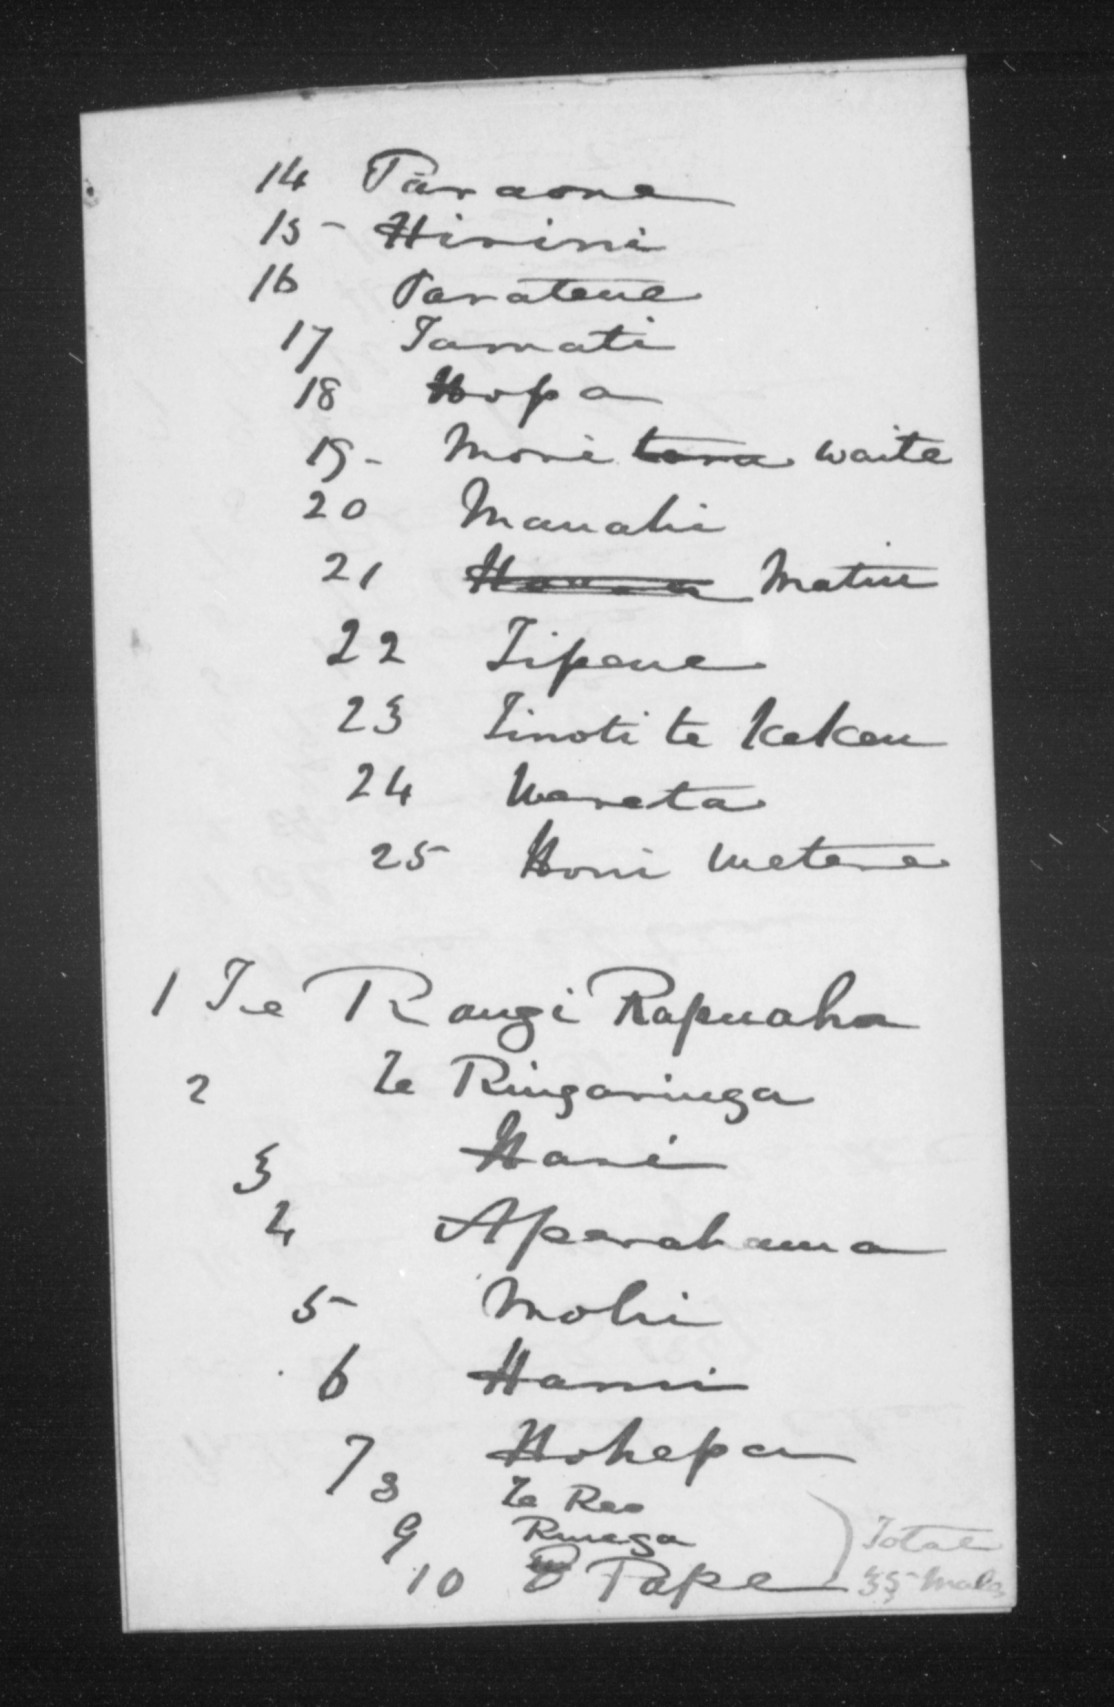 14 Paraone
15 - Hirini
16 Paratene
17 Tamati
18 Hopa
19 - Moni tona waite
20 Manahi
21 Matiu
22 Tipene
23 Tinoti te Kekeu
24 Wereta
25 Honi Wetere
1 Te Rangi Rapuaha
2 Te Ringaringa
3 Hani
4 Aperahama
5 Mohi
6 Hami
7 Hohepa
8 Te Reo
9 Runega
10 Pape
Total
35 Males